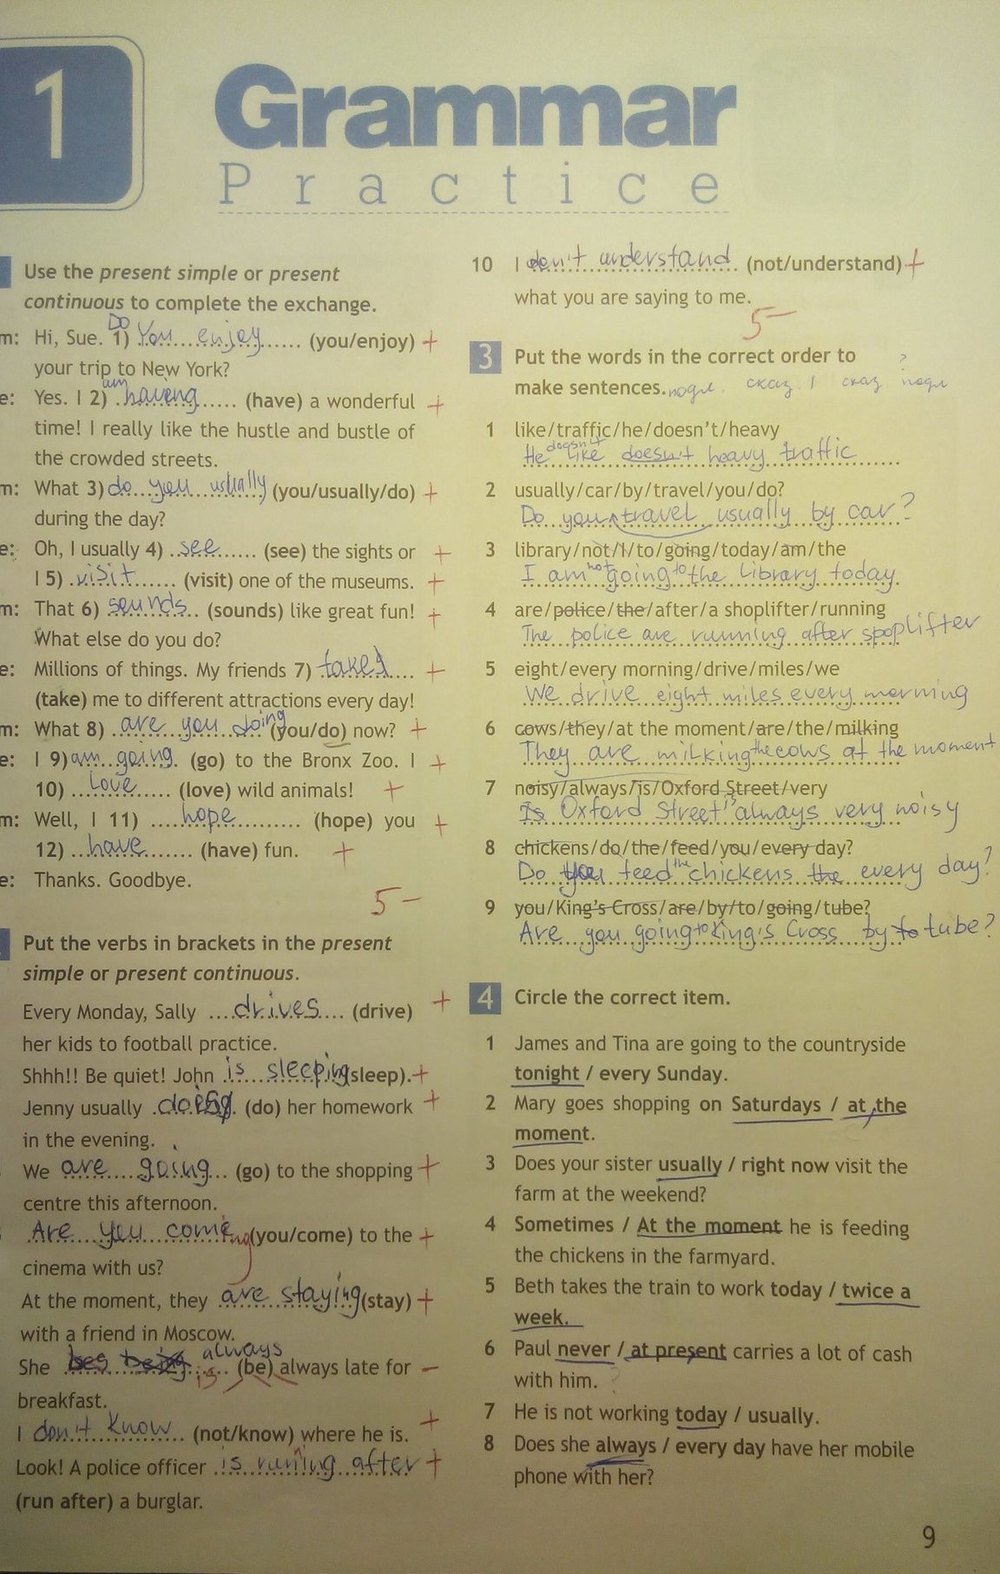 1
Grammar
Practice
Use the present simple or present
continuous to complete the exchange.
m: Hi, Sue. 1) Do You enjoy (you/enjoy) +
your trip to New York?
e: Yes. I 2) am having (have) a wonderful +
time! I really like the hustle and bustle of
the crowded streets.
m: What 3) do you usually (you/usually/do) +
during the day?
e: Oh, I usually 4) see (see) the sights or +
I 5) visit (visit) one of the museums. +
m: That 6) sounds (sounds) like great fun! +
What else do you do?
e: Millions of things. My friends 7) +
(take) me to different attractions every day!
m: What 8) are you doing (you/do) now? +
e: I 9) am going (go) to the Bronx Zoo. I +
10) love (love) wild animals! +
m: Well, I 11) hope (hope) you +
12) have (have) fun. +
e: Thanks. Goodbye.
5-
Put the verbs in brackets in the present
simple or present continuous.
Every Monday, Sally drives (drive) +
her kids to football practice.
Shhh!! Be quiet! John is sleeping (sleep). +
Jenny usually (do) her homework +
in the evening.
We are going (go) to the shopping +
centre this afternoon.
Are you coming (you/come) to the +
cinema with us?
At the moment, they are staying (stay) +
with a friend in Moscow.
She is always (be) always late for -
breakfast.
I don't know (not/know) where he is. +
Look! A police officer is running after +
(run after) a burglar.
10 I don't understand (not/understand) +
what you are saying to me.
5-
3 Put the words in the correct order to
make sentences. подл. сказ / сказ подл ?
1 like/traffic/he/doesn't/heavy
He doesn't like doesn't heavy traffic
2 usually/car/by/travel/you/do?
Do you travel usually by car?
3 library/not/I/to/going/today/am/the
I am not going to the library today.
4 are/police/the/after/a shoplifter/running
The police are running after spoplifter
5 eight/every morning/drive/miles/we
We drive eight miles every morning
6 cows/they/at the moment/are/the/milking
They are milking the cows at the moment
7 noisy/always/is/Oxford Street/very
Is Oxford Street is always very noisy
8 chickens/do/the/feed/you/every day?
Do you feed the chickens the every day?
9 you/King's Cross/are/by/to/going/tube?
Are you going to King's Cross by to tube?
4 Circle the correct item.
1 James and Tina are going to the countryside
tonight / every Sunday.
2 Mary goes shopping on Saturdays / at the
moment.
3 Does your sister usually / right now visit the
farm at the weekend?
4 Sometimes / At the moment he is feeding
the chickens in the farmyard.
5 Beth takes the train to work today / twice a
week.
6 Paul never / at present carries a lot of cash
with him. ?
7 He is not working today / usually.
8 Does she always / every day have her mobile
phone with her?
9